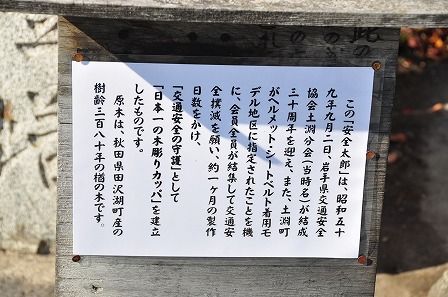 この「安全太郎」は、昭和五十
九年九月二日、岩手県交通安全
協会土淵分会(当時名)が結成
三十周年を迎え、また、土淵町
がヘルメット・シートベルト着用モ
デル地区に指定されたことを機
に、会員全員が結集して交通安
全撲滅を願い、約一ヶ月の製作
日数をかけ、
「交通安全の守護」として
「日本一の木彫りカッパ」を建立
したものです。
原木は、秋田県田沢湖町産の
樹齢三百八十年の楢の木です。